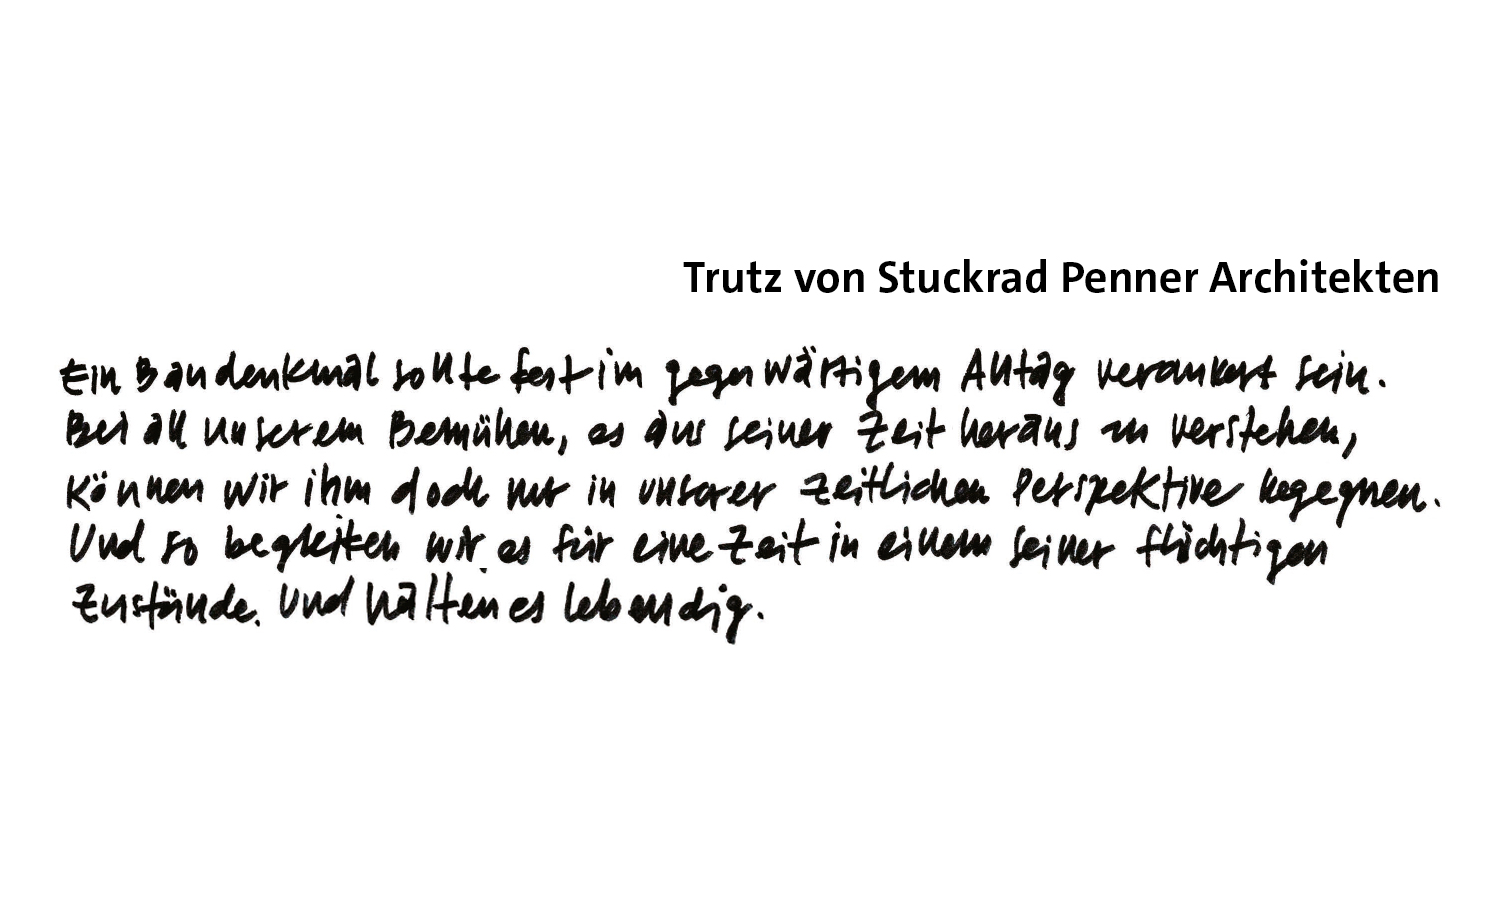 Trutz von Stuckrad Penner Architekten
Ein Baudenkmal sollte fest im gegenwärtigem Alltag verankert sein.
Bei all unserem Bemühen, es aus seiner Zeit heraus zu verstehen,
können wir ihm doch nur in unserer zeitlichen Perspektive begegnen.
Und so begleiten wir es für eine Zeit in einem seiner flüchtigen
Zustände. Und halten es lebendig.